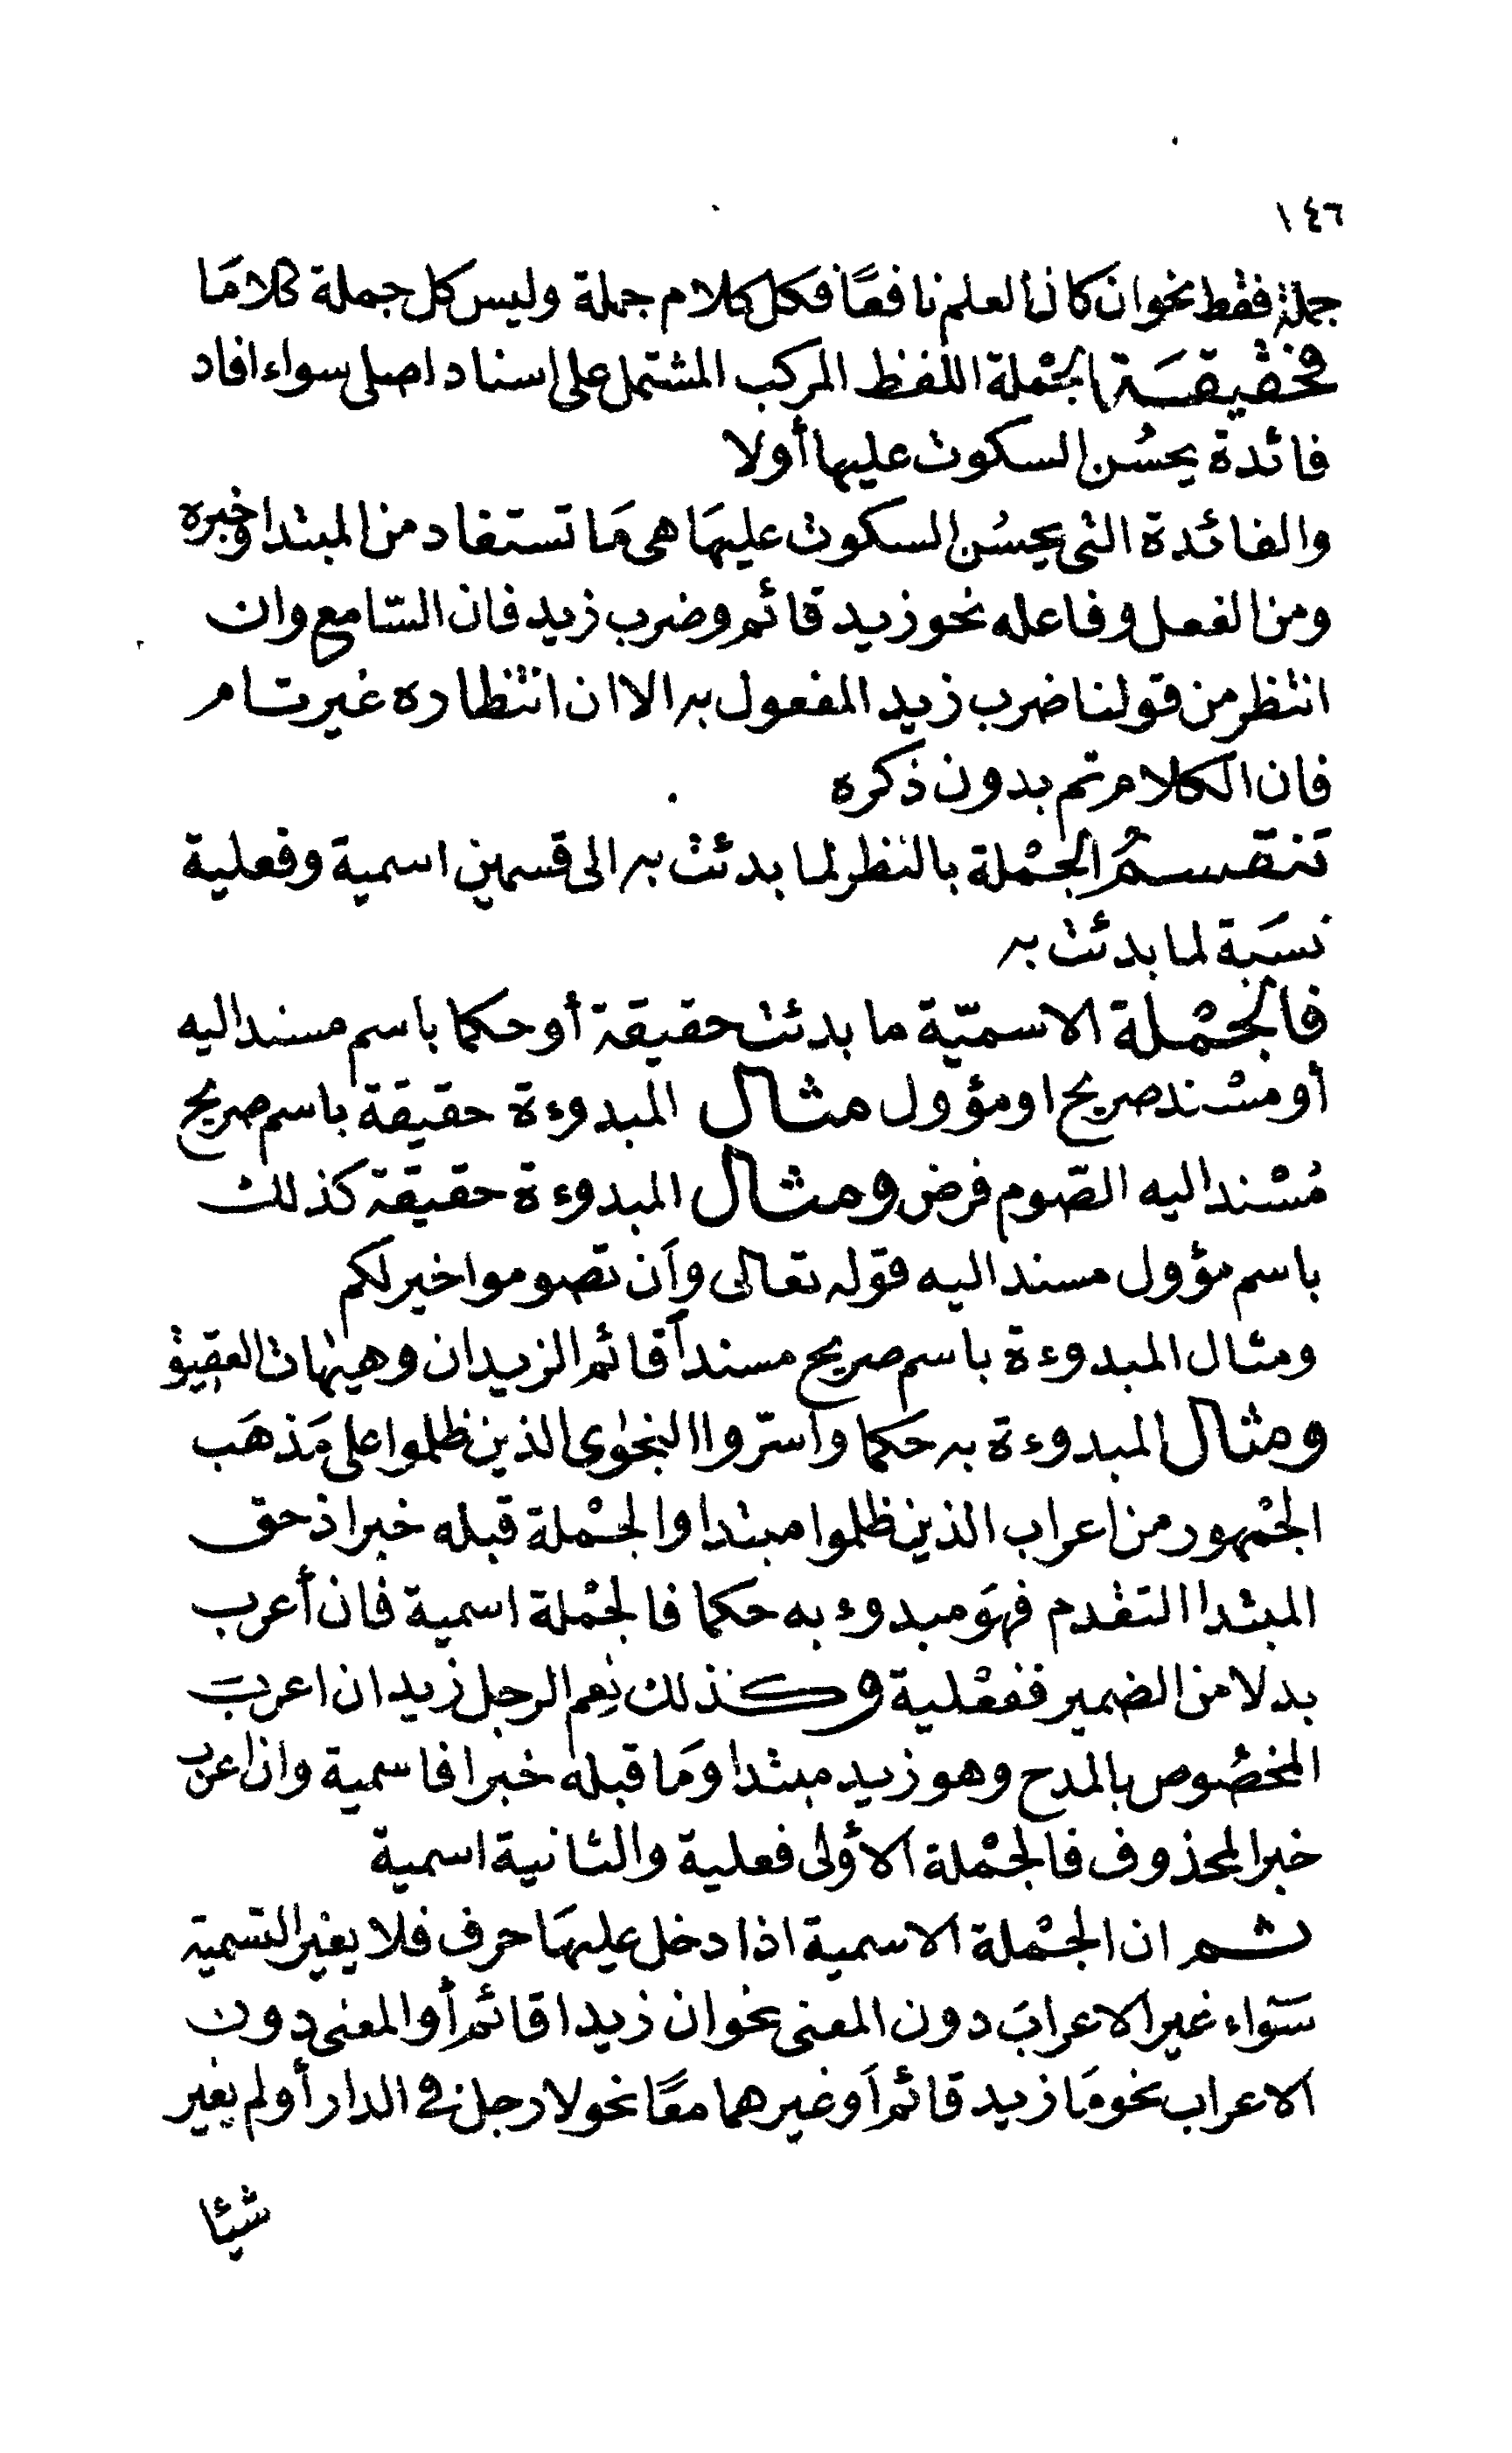 ١٤٦
جملة فقط نحو ان كان العلم نافعًا فكل كلام جملة وليس كل جملة كلامَا
فحَقيقَة الجمْلة اللفظ المركب المشتمل على اسناد اصلى سواء افاد
فائدة يحسُن السكوت عليها أولا
والفائدة التى يحسُن السكوت عليهَا هى مَا تستفاد من المبتدا وخبره
ومن الفعل وفاعله نحو زيد قائم وضرب زيد فان السّامع وان
انتظر من قولنا ضرب زيد المفعول به الا ان انتظاره غير تام
فان الكلام تم بدون ذكره
تنقسمُ الجمْلة بالنظر لما بدئت به الى قسمين اسمية وفعلية
نسَبة لما بدئت به
فالجمْلة الاسميّة ما بدئت حقيقة أو حكما باسم مسند اليه
أو مسْند صريح او مؤول مثال المبدوءة حقيقة باسم صريح
مُسْند اليه الصّوم فرض ومثال المبدوءة حقيقة كذلك
باسم مؤول مسند اليه قوله تعالى وأن تصوموا خير لكم
ومثال المبدوءة باسم صريح مسنداً قائم الزيدان وهيهات العقيق
ومثال المبدوءة به حَكما وأسرّوا النجوٰى الذين ظلموا على مَذهَب
الجمْهور من اعراب الذين ظلموا مبتدا والجمْلة قبله خبرا ذحق
المبتدا التقدم فهوَ مبدوء به حكما فالجمْلة اسمية فان أعرب
بدلا من الضمير ففعْلية وكذلك نِعم الرجل زيد ان اعربَ
المخصُوص بالمدح وهو زيد مبتدا ومَا قبله خبرا فاسمية وان اعرب
خبرا لمحذوف فالجمْلة الأولى فعلية والثانية اسمية
ثم ان الجمْلة الاسمية اذا دخل عليهَا حرف فلا يغير التسمية
سَواء غير الاعرابَ دون المعنى نحو ان زيدا قائم أو المعنى دون
الاعراب نحو مَا زيد قائم أو غيرهما معًا نحو لا رجل فى الدار أو لم يغير
شيئا